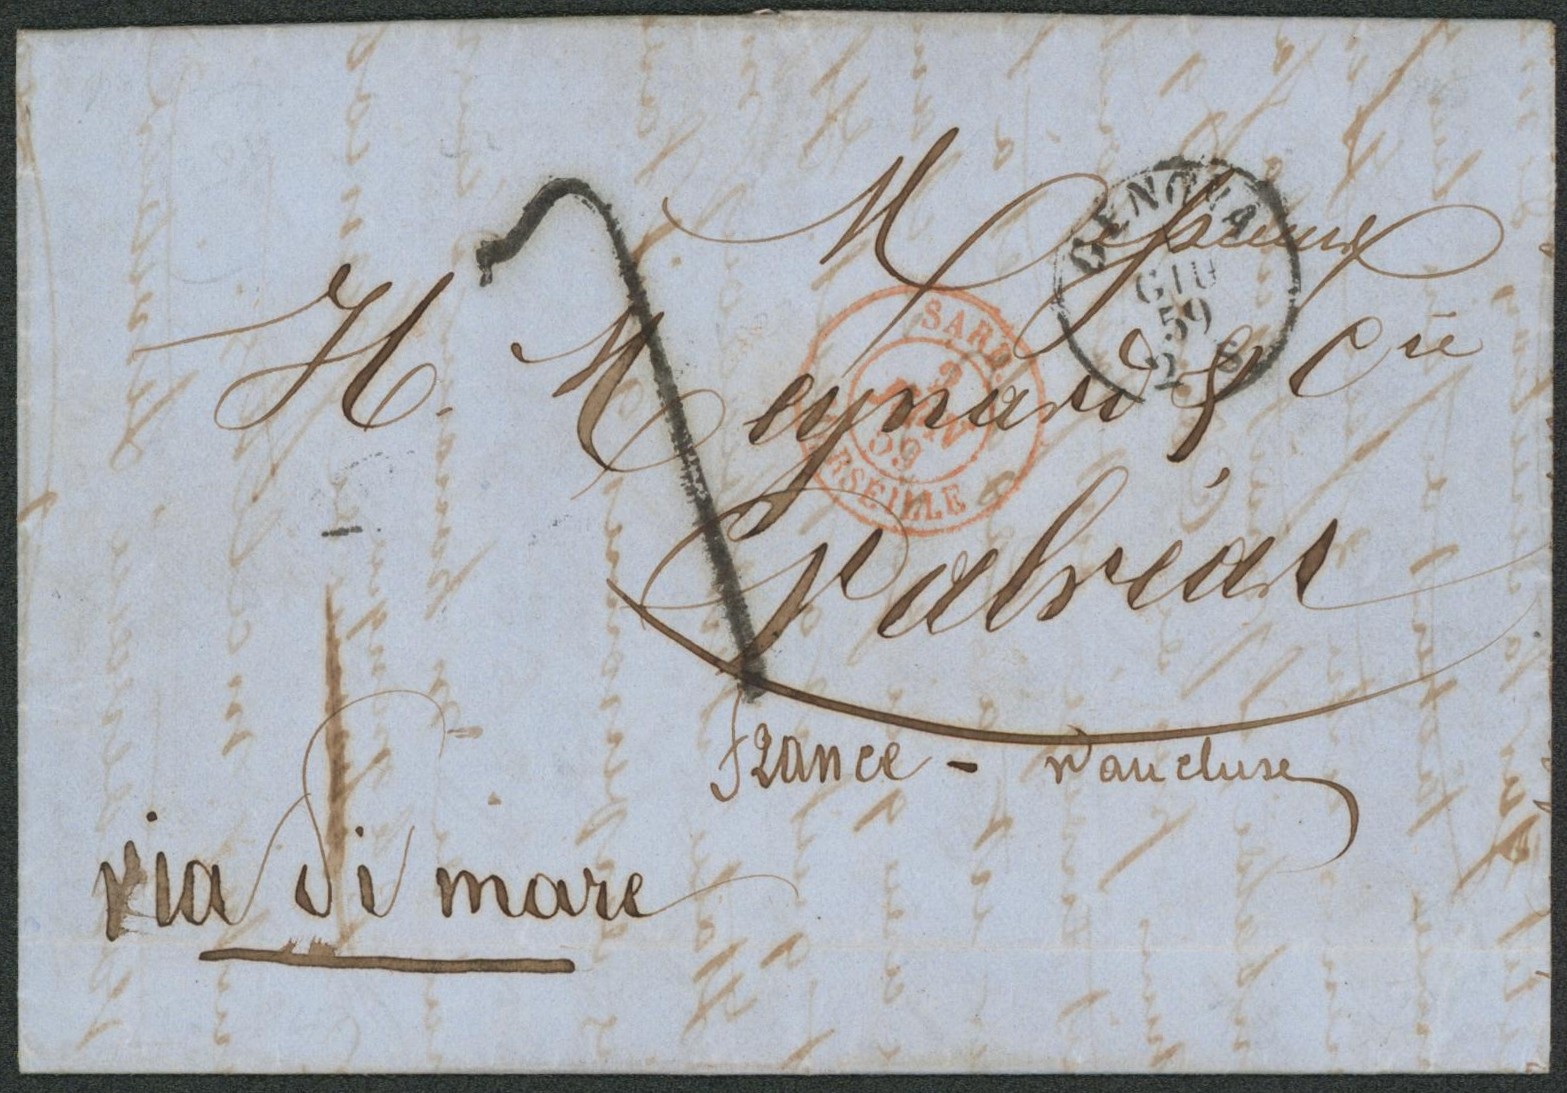 Messieurs
H. Meynard & Cie
Valréas
France - Vaucluse
via di mare
GENOVA
GIU
59
2 S
SARD.
3
JUIN
59
MARSEILLE